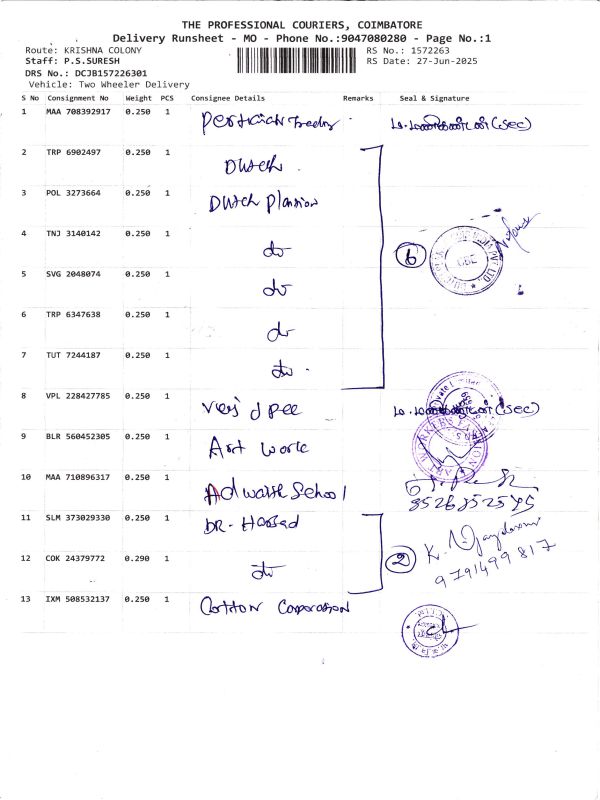 THE PROFESSIONAL COURIERS, COIMBATORE
Delivery Runsheet - MO - Phone No.:9047080280 - Page No.:1
Route: KRISHNA COLONY RS No.: 1572263
Staff: P.S.SURESH RS Date: 27-Jun-2025
DRS No.: DCJB157226301
Vehicle: Two Wheeler Delivery
S No Consignment No Weight PCS Consignee Details Remarks Seal & Signature
1 MAA 708392917 0.250 1 (SEC)
2 TRP 6902497 0.250 1 Dutch
3 POL 3273664 0.250 1 Dutch
4 TNJ 3140142 0.250 1 do 6
5 SVG 2048074 0.250 1 do
6 TRP 6347638 0.250 1 do
7 TUT 7244187 0.250 1 do
8 VPL 228427785 0.250 1 (SEC)
9 BLR 560452305 0.250 1 Art work
10 MAA 710896317 0.250 1 School
11 SLM 373029330 0.250 1 DR.
12 COK 24379772 0.290 1 do 2 K.
9791499817
13 IXM 508532137 0.250 1 Cotton Corporation